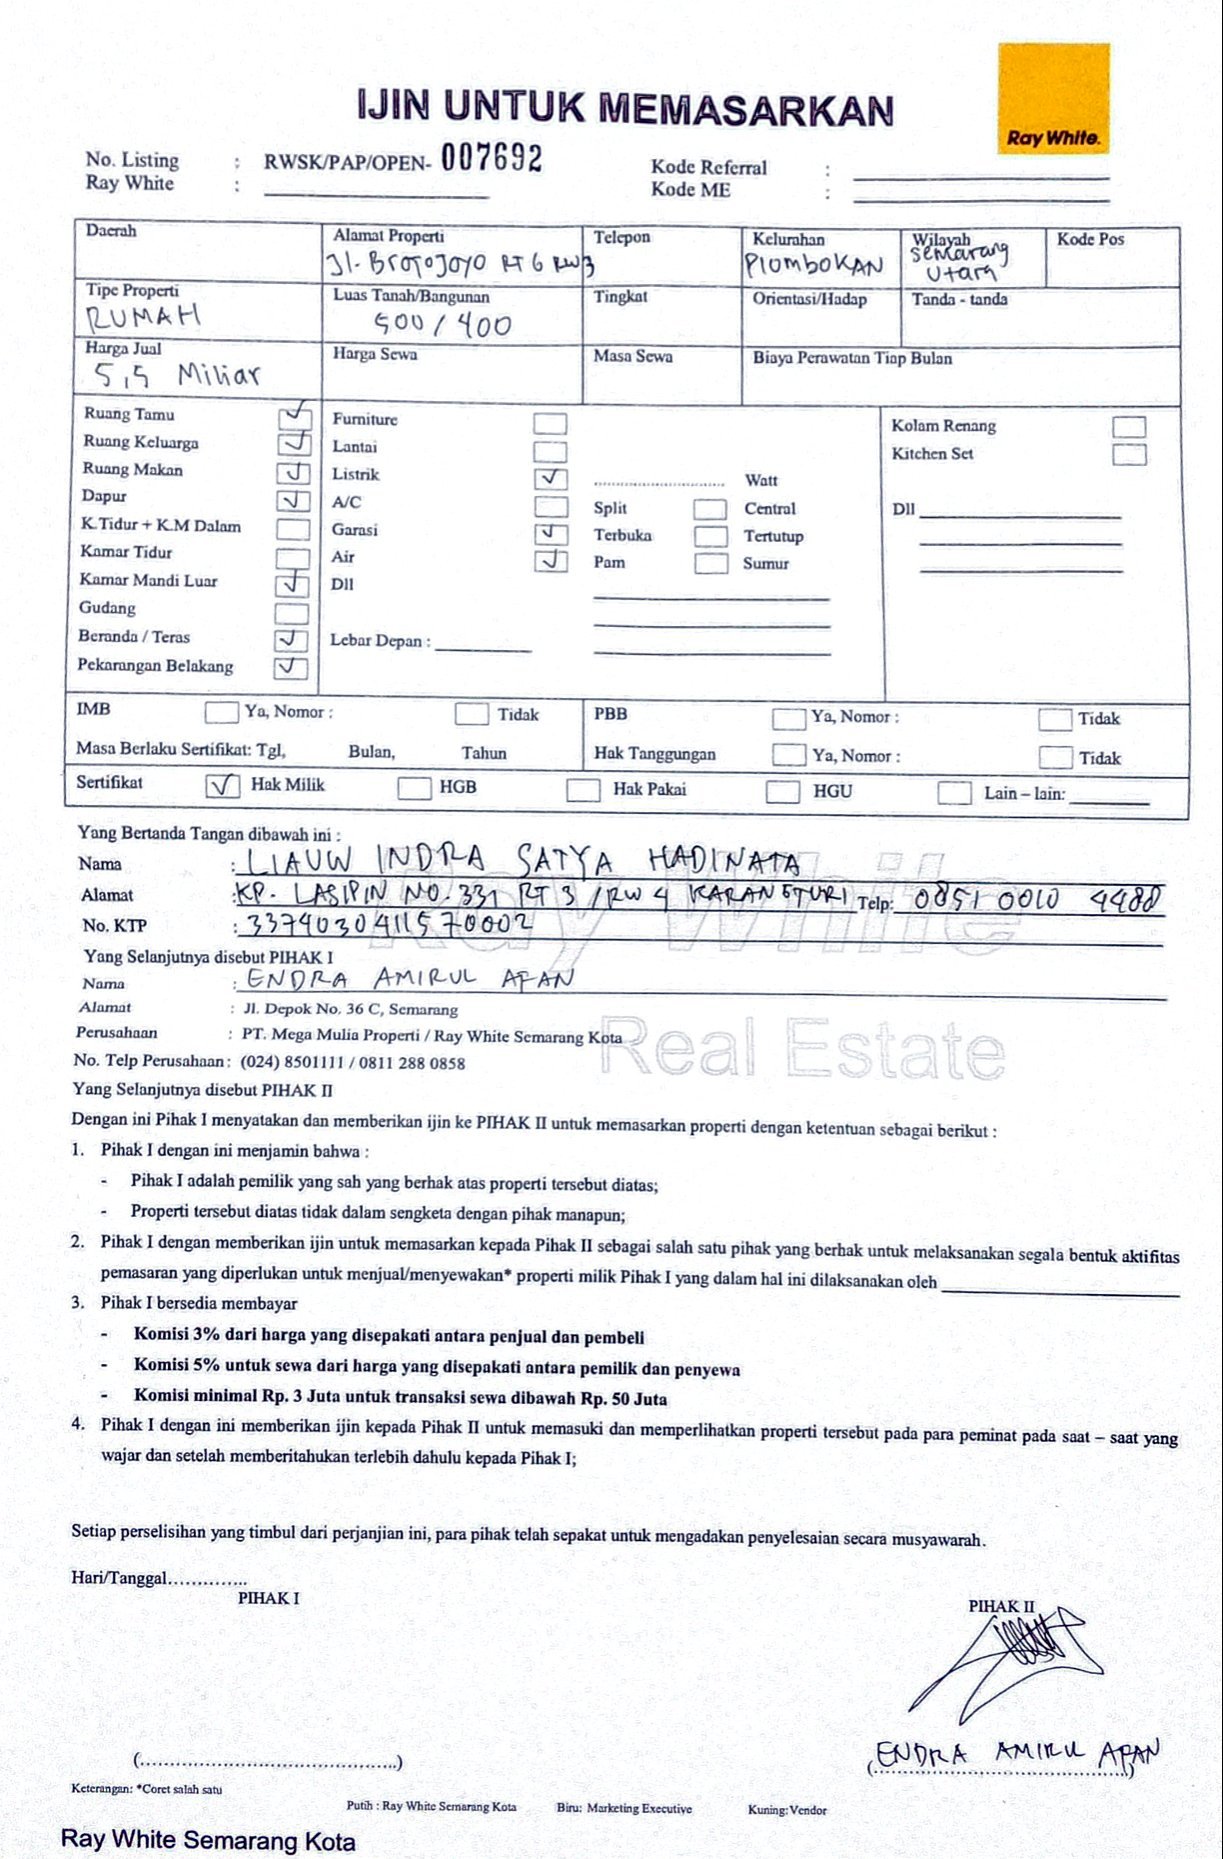 IJIN UNTUK MEMASARKAN
Ray White.
No. Listing : RWSK/PAP/OPEN- 007692 Kode Referral :
Ray White : Kode ME :
Daerah Alamat Properti Telepon Kelurahan Wilayah Kode Pos
Jl. Brotojoyo RT 6 RW 3 Plombokan Semarang Utara
Tipe Properti Luas Tanah/Bangunan Tingkat Orientasi/Hadap Tanda - tanda
RUMAH 500 / 400
Harga Jual Harga Sewa Masa Sewa Biaya Perawatan Tiap Bulan
5,5 Miliar
Ruang Tamu ✓ Furniture Kolam Renang
Ruang Keluarga ✓ Lantai Kitchen Set
Ruang Makan ✓ Listrik ✓ .............................. Watt
Dapur ✓ A/C Split Central Dll
K.Tidur + K.M Dalam Garasi ✓ Terbuka Tertutup
Kamar Tidur Air ✓ Pam Sumur
Kamar Mandi Luar ✓ Dll
Gudang
Beranda / Teras ✓ Lebar Depan :
Pekarangan Belakang ✓
IMB Ya, Nomor : Tidak PBB Ya, Nomor : Tidak
Masa Berlaku Sertifikat: Tgl, Bulan, Tahun Hak Tanggungan Ya, Nomor : Tidak
Sertifikat ✓ Hak Milik HGB Hak Pakai HGU Lain – lain:
Yang Bertanda Tangan dibawah ini :
Nama : LIAUW INDRA SATYA HADINATA
Alamat : KP. LASIPIN NO. 331 RT 3 / RW 4 KARANGTURI Telp: 0851 0010 4488
No. KTP : 3374030411570002
Yang Selanjutnya disebut PIHAK I
Nama : ENDRA AMIRUL AFAN
Alamat : Jl. Depok No. 36 C, Semarang
Perusahaan : PT. Mega Mulia Properti / Ray White Semarang Kota
No. Telp Perusahaan : (024) 8501111 / 0811 288 0858
Ray White
Real Estate
Yang Selanjutnya disebut PIHAK II
Dengan ini Pihak I menyatakan dan memberikan ijin ke PIHAK II untuk memasarkan properti dengan ketentuan sebagai berikut :
1. Pihak I dengan ini menjamin bahwa :
- Pihak I adalah pemilik yang sah yang berhak atas properti tersebut diatas;
- Properti tersebut diatas tidak dalam sengketa dengan pihak manapun;
2. Pihak I dengan memberikan ijin untuk memasarkan kepada Pihak II sebagai salah satu pihak yang berhak untuk melaksanakan segala bentuk aktifitas
pemasaran yang diperlukan untuk menjual/menyewakan* properti milik Pihak I yang dalam hal ini dilaksanakan oleh
3. Pihak I bersedia membayar
- Komisi 3% dari harga yang disepakati antara penjual dan pembeli
- Komisi 5% untuk sewa dari harga yang disepakati antara pemilik dan penyewa
- Komisi minimal Rp. 3 Juta untuk transaksi sewa dibawah Rp. 50 Juta
4. Pihak I dengan ini memberikan ijin kepada Pihak II untuk memasuki dan memperlihatkan properti tersebut pada para peminat pada saat – saat yang
wajar dan setelah memberitahukan terlebih dahulu kepada Pihak I;
Setiap perselisihan yang timbul dari perjanjian ini, para pihak telah sepakat untuk mengadakan penyelesaian secara musyawarah.
Hari/Tanggal..............
PIHAK I PIHAK II
(..............................................) (ENDRA AMIRUL AFAN)
Keterangan: *Coret salah satu
Putih : Ray White Semarang Kota Biru: Marketing Executive Kuning: Vendor
Ray White Semarang Kota